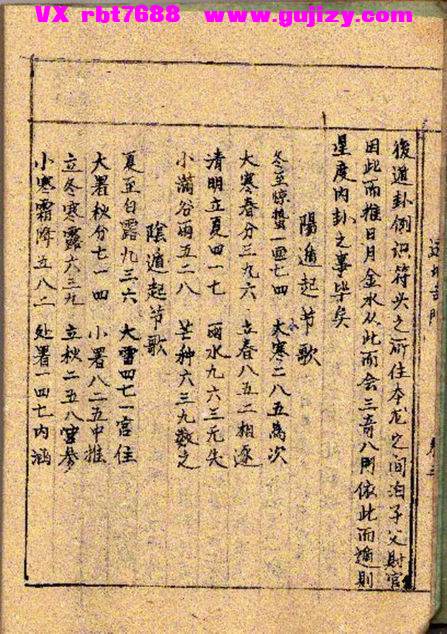 VX rbt7688 www.gujizy.com
後遁卦例识符头之所住本龙之间泊子父財官
因此而推日月金水从此而会三奇八門依此而遁則
星度内卦之事毕矣
陽遁起节歌
冬至惊蛰一七四 小寒二八五為次
大寒春分三九六 立春八五二相逐
清明立夏四一七 雨水九六三无失
小滿谷雨五二八 芒种六三九数之
陰遁起节歌
夏至白露九三六 大雪四七一宮住
大署秋分七一四 小署八二五中推
立冬寒露六三九 立秋二五八宮參
小寒霜降五八二 处署一四七内涵
卷三